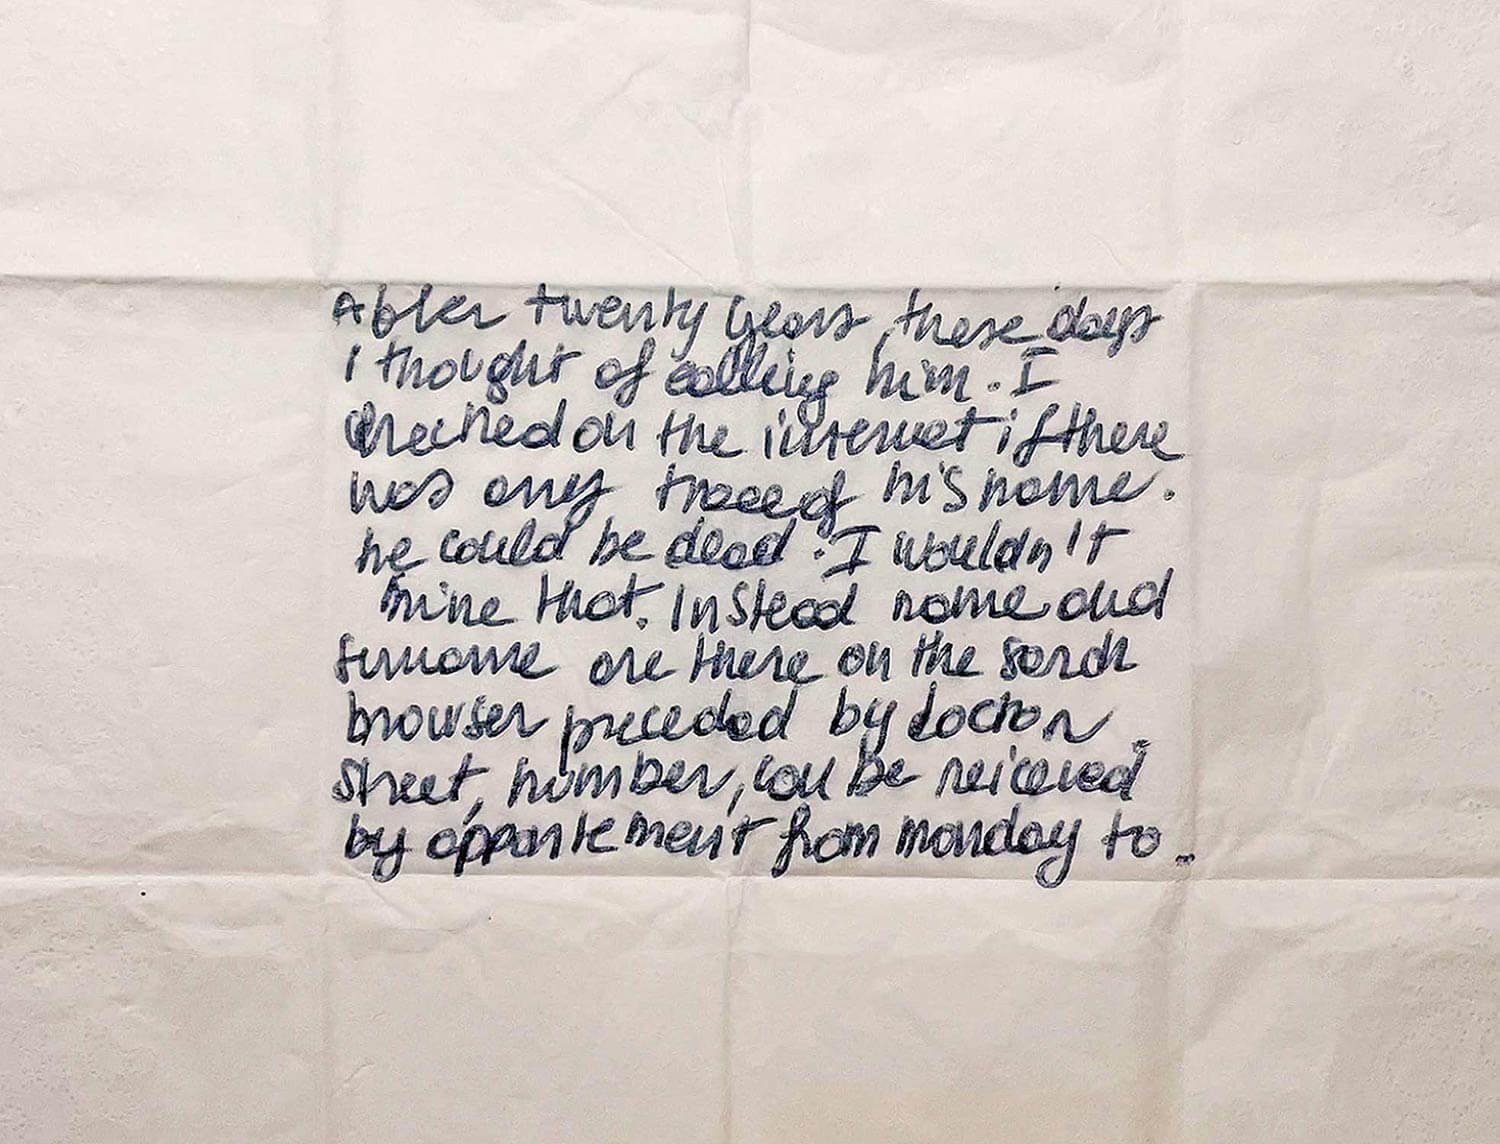 After twenty years, these days
I thought of calling him. I
checked on the internet if there
was any trace of his name.
he could be dead. I wouldn't
mine that. Instead name and
surname are there on the serch
browser preceded by doctor
street, number, can be reiceved
by appointement from monday to ..